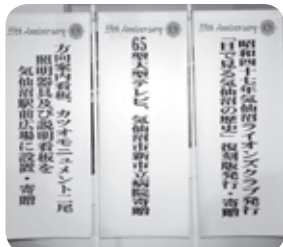 55th Anniversary
昭和四十七年気仙沼ライオンズクラブ発行
「目で見る気仙沼の歴史」復刻版発行・寄贈
55th Anniversary
65型大型テレビ、気仙沼市新市立病院寄贈
55th Anniversary
方向案内看板、カツオモニュメント二尾
照明器具及び説明看板を
気仙沼駅前広場に設置・寄贈